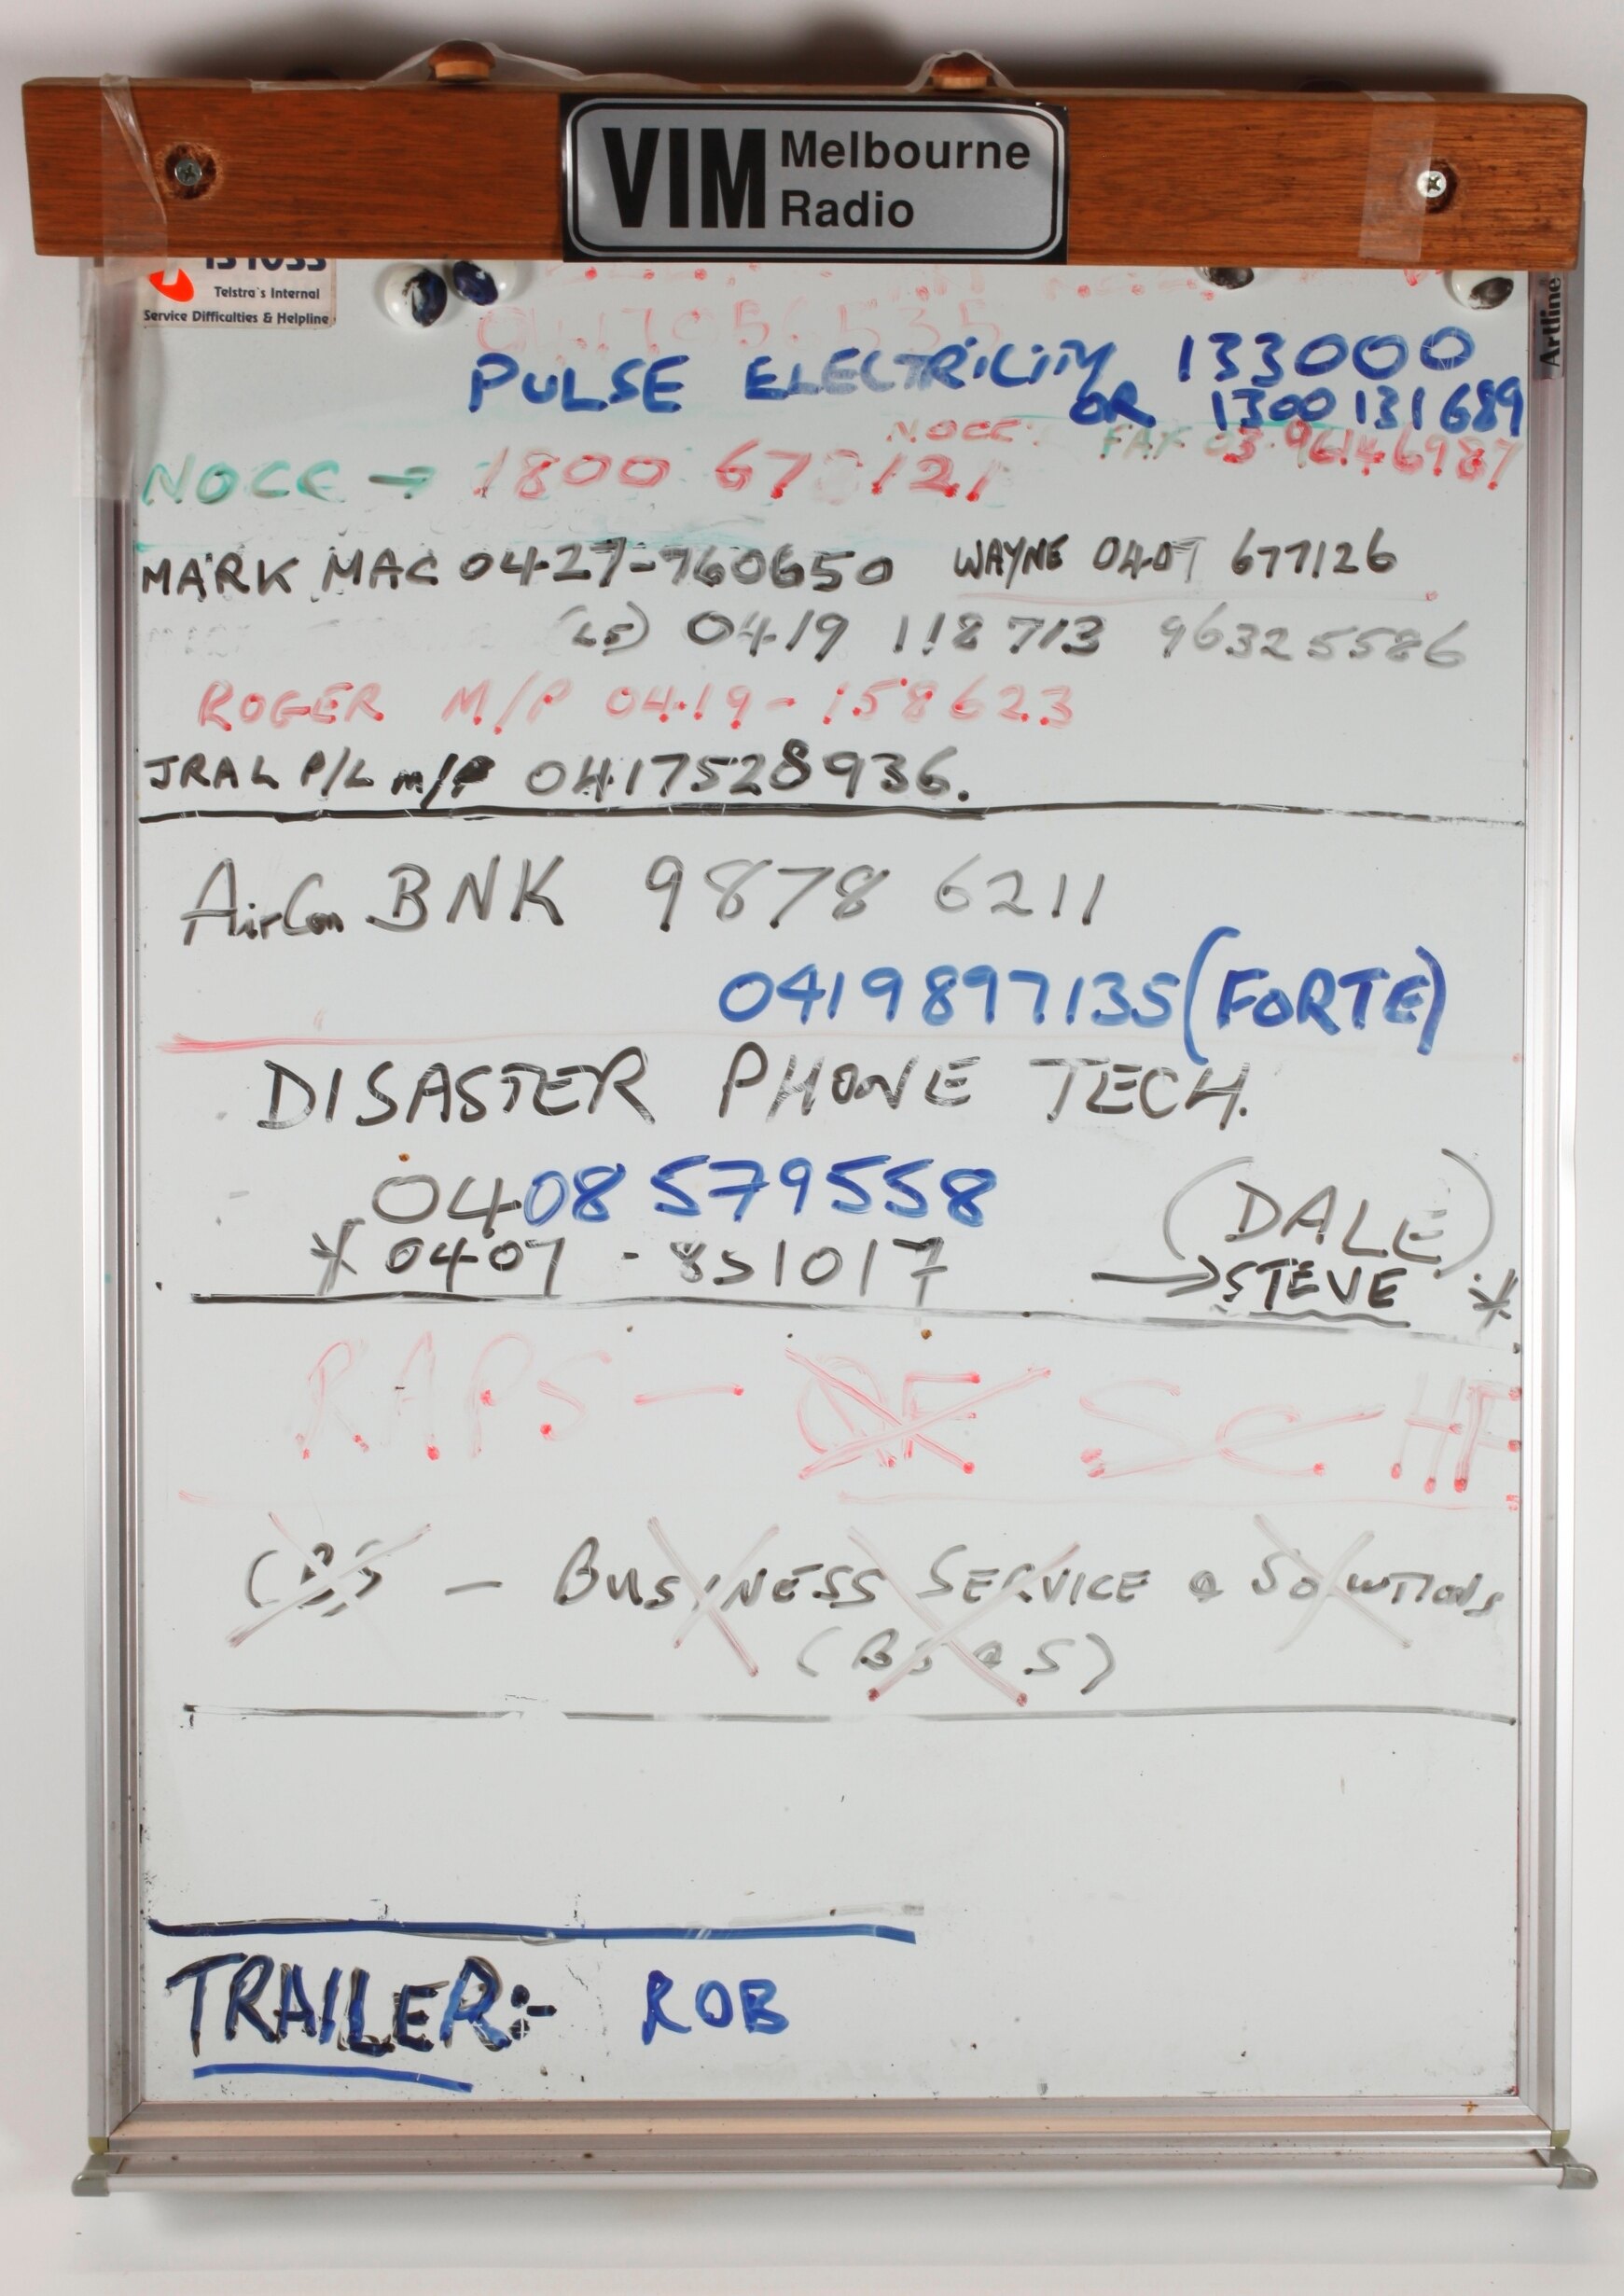 VIM Melbourne
Radio
Telstra's Internal
Service Difficulties & Helpline
Artline
0417056535
PULSE ELECTRICITY 133000
OR 1300 131 689
NOCC: FAX 03 96146987
NOCC → 1800 67 121
MARK MAC 0427-760650 WAYNE 0407 677126
0419 118 713 96325586
ROGER M/P 0419-158623
JRAL P/L M/P 0417528936.
AirCon BNK 9878 6211
0419897135 (FORTE)
DISASTER PHONE TECH.
0408 579558 (DALE)
* 0407 - 851017 → STEVE *
RAPS -
- BUSINESS SERVICE & SOLUTIONS
(BS & S)
TRAILER:- ROB